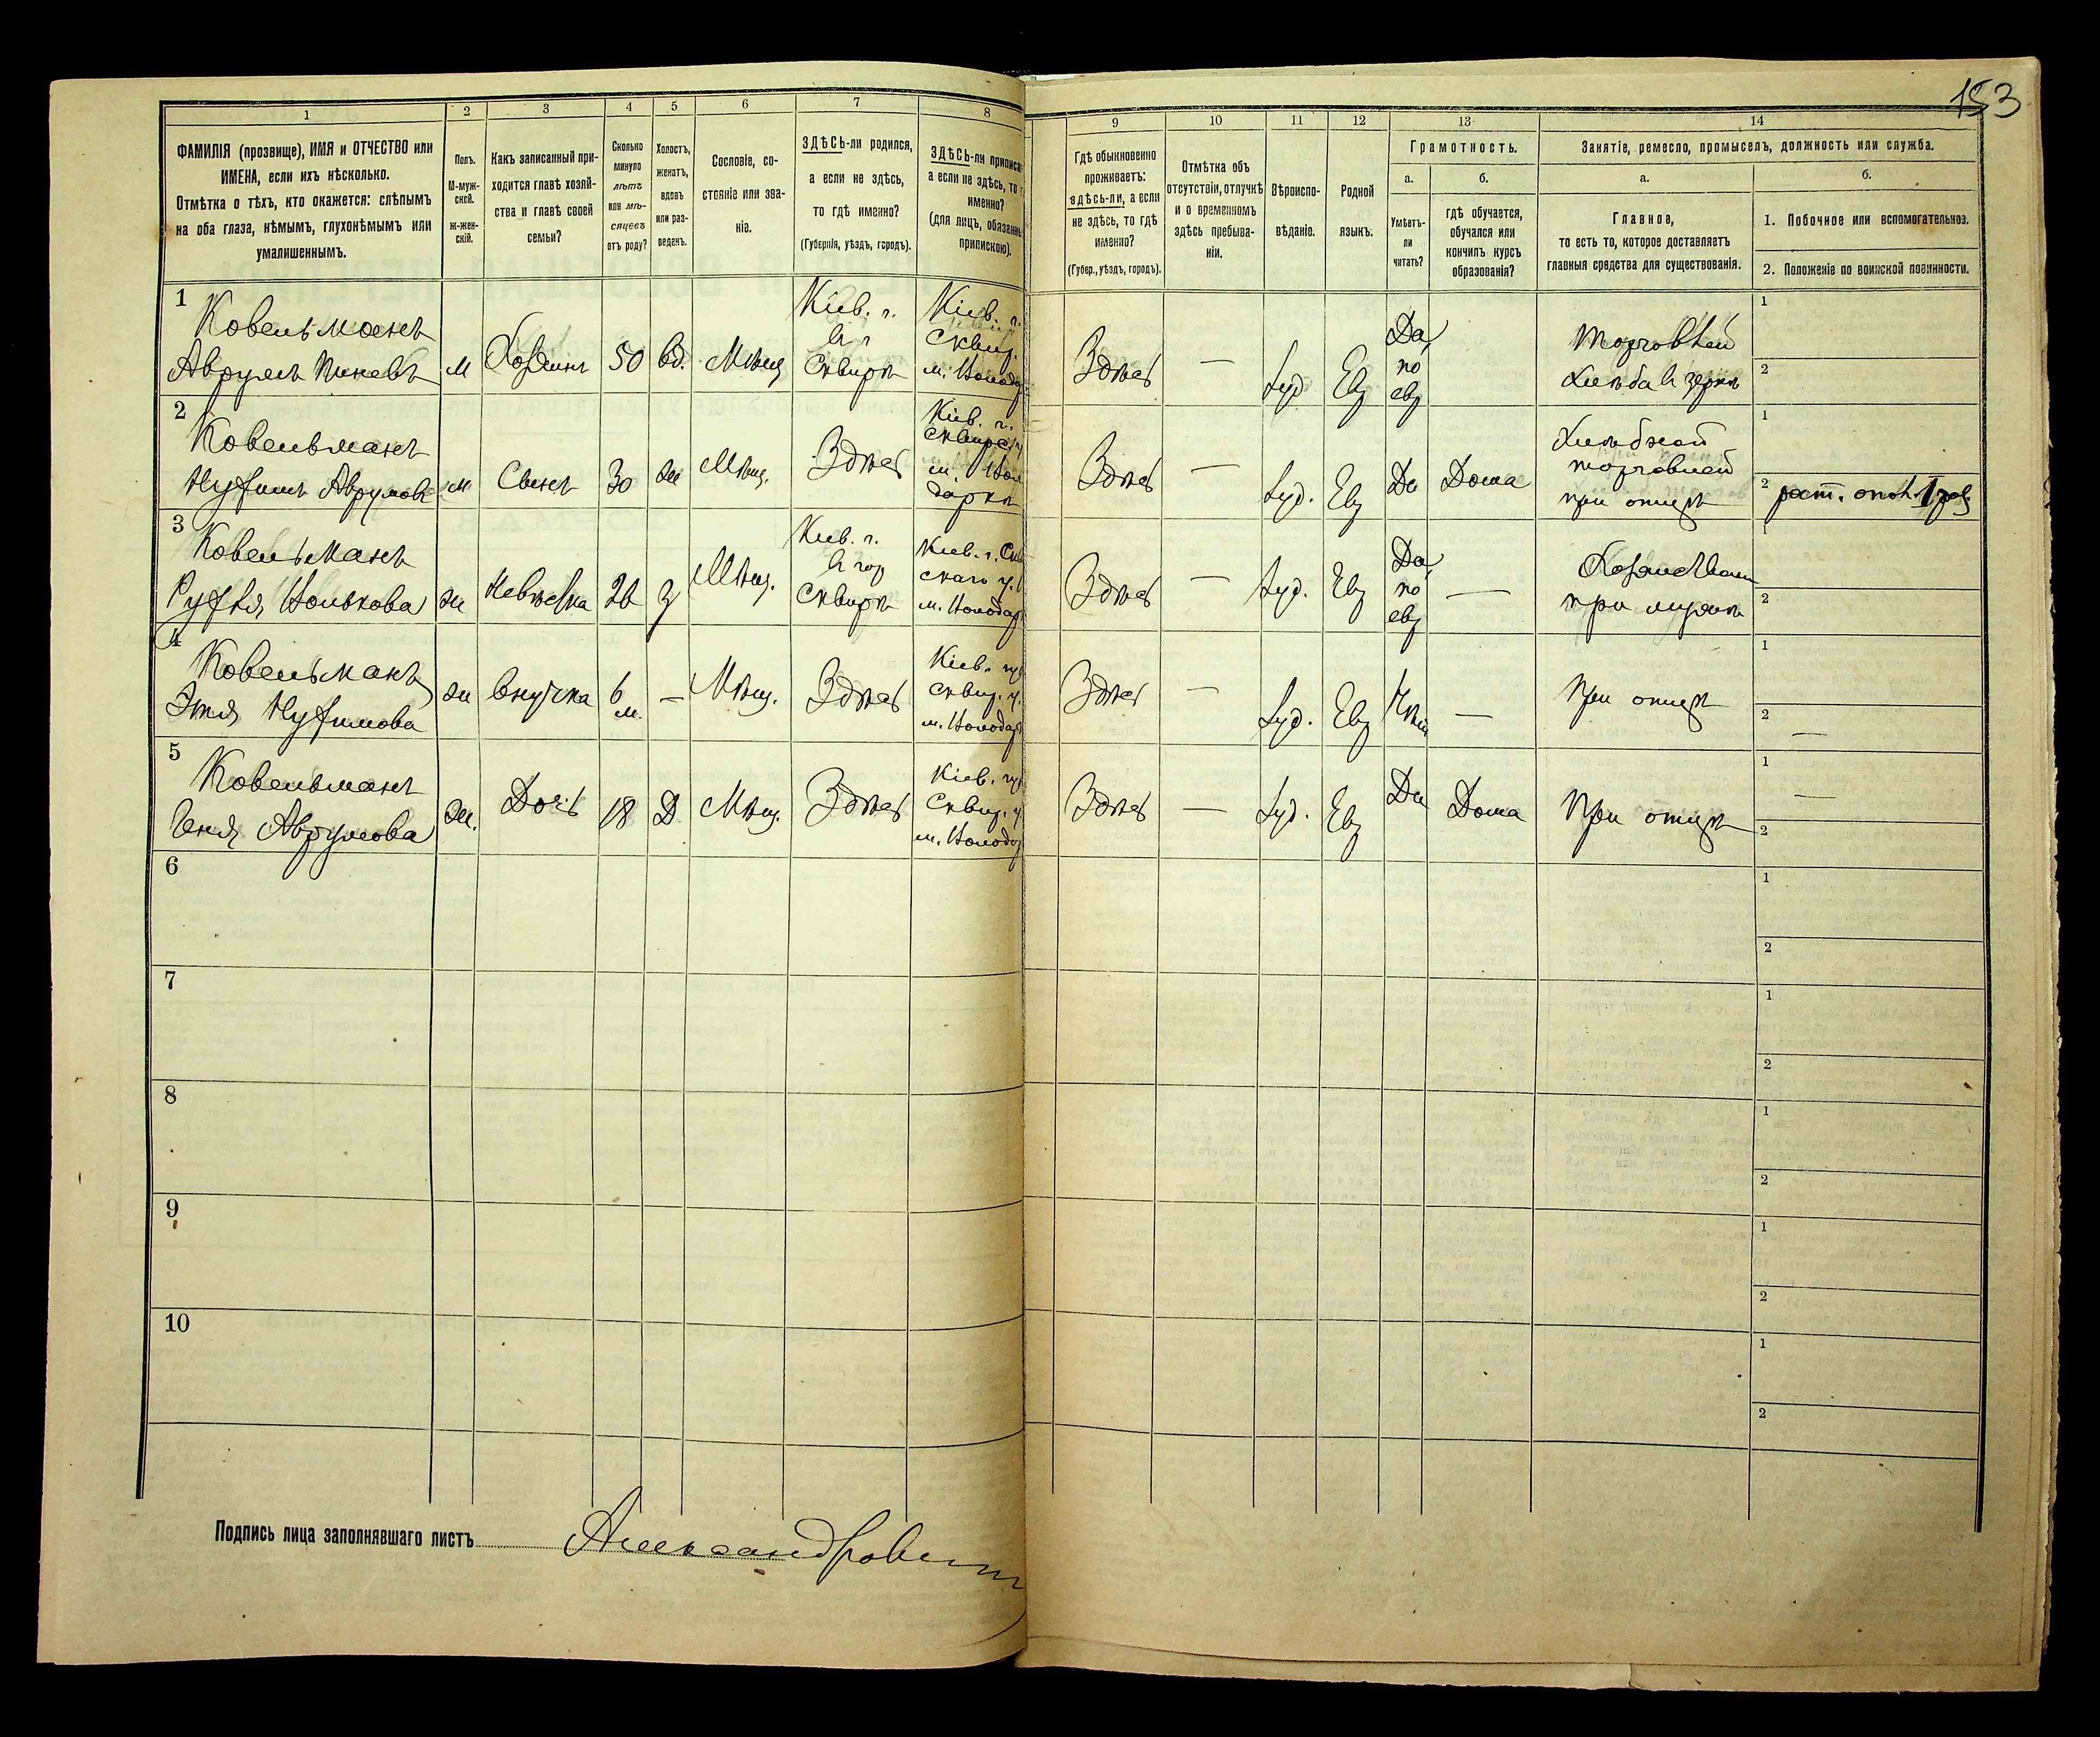 153
1
2
3
4
5
6
7
8
ФАМИЛІЯ (прозвище), ИМЯ и ОТЧЕСТВО или
ИМЕНА, если ихъ нѣсколько.
Отмѣтка о тѣхъ, кто окажется: слѣпымъ
на оба глаза, нѣмымъ, глухонѣмымъ или
умалишеннымъ.
Полъ.
М-муж-
ской.
ж-жен-
скій.
Какъ записанный при-
ходится главѣ хозяй-
ства и главѣ своей
семьи?
Сколько
минуло
лѣтъ
или мѣ-
сяцевъ
отъ роду?
Холостъ,
женатъ,
вдовъ
или раз-
веденъ.
Сословіе, со-
стояніе или зва-
ніе.
ЗДѢСЬ-ли родился,
а если не здѣсь,
то гдѣ именно?
(Губернія, уѣздъ, городъ).
ЗДѢСЬ-ли приписа
а если не здѣсь, то
именно?
(для лицъ, обязанн
припискою).
9
10
11
12
13
14
Гдѣ обыкновенно
проживаетъ:
здѣсь-ли, а если
не здѣсь, то гдѣ
именно?
(Губер., уѣздъ, городъ).
Отмѣтка объ
отсутствіи, отлучкѣ
и о временномъ
здѣсь пребыва-
ніи.
Вѣроиспо-
вѣданіе.
Родной
языкъ.
Грамотность.
а.
Умѣетъ-
ли
читать?
б.
гдѣ обучается,
обучался или
кончилъ курсъ
образованія?
Занятіе, ремесло, промыселъ, должность или служба.
а.
Главное,
то есть то, которое доставляетъ
главныя средства для существованія.
б.
1. Побочное или вспомогательное.
2. Положеніе по воинской повинности.
1
Ковельманъ
Аврумъ
м
Хозяинъ
50
вд.
Мѣщ
Кіев. г.
в г
Сквирѣ
Кіев. г.
Сквир.
м. Волода
Здѣсь
—
Іуд
Евр
Да
по
евр
Торговлей
хлѣба въ зернѣ
1
2
2
Ковельманъ
Нухимъ Аврумовъ
м
Сынъ
30
ж
Мѣщ.
Здѣсь
Кіев. г.
Сквирс. у
м. Воло
даркѣ
Здѣсь
—
Іуд.
Евр
Да
Дома
Хлѣбной
торговлей
при отцѣ
1
2 рат. опол. 1 раз.
3
Ковельманъ
Волькова
ж
Невѣстка
26
з
Мѣщ.
Кіев. г.
в гор
Сквирѣ
Кіев. г. Скв
скаго у.
м. Володар
Здѣсь
—
Іуд.
Евр
Да
по
евр
—
Хозяйством
при мужѣ
1
2
4
Ковельманъ
Этля Нухимова
ж
Внучка
6
м.
—
Мѣщ.
Здѣсь
Кіев. гу
Сквир. у.
м. Володар
Здѣсь
—
Іуд.
Евр
Нѣт
—
При отцѣ
1
2
—
5
Ковельманъ
Геня Аврумова
ж.
Дочь
18
Д
Мѣщ.
Здѣсь
Кіев. гу
Сквир. у
м. Володар
Здѣсь
—
Іуд.
Евр
Да
Дома
При отцѣ
1
—
2
6
1
2
7
1
2
8
1
2
9
1
2
10
1
2
Подпись лица заполнявшаго листъ